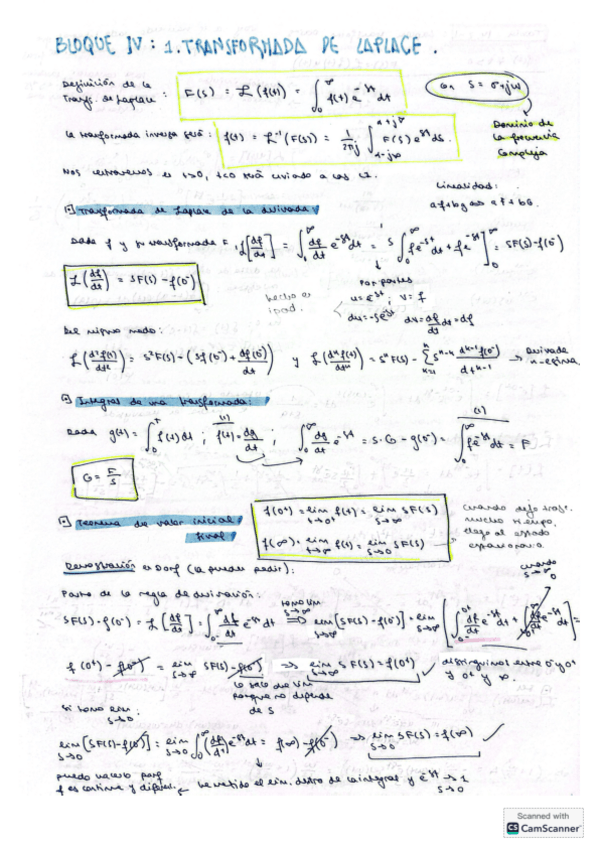 BLOQUE IV: 1. TRANSFORMADA DE LAPLACE.
Definición de la
Transf. de Laplace: F(s) = ℒ(f(t)) = ∫₀^∞ f(t) e^{-st} dt
con s = σ + jω
Dominio de
la frecuencia
compleja
La transformada inversa será: f(t) = ℒ⁻¹(F(s)) = 1/(2πj) ∫_{σ-j∞}^{σ+j∞} F(s) e^{st} ds.
Nos centraremos en t>0, t<0 será enviado a las CI.
Linealidad:
af + bg ⟹ aF + bG.
Transformada de Laplace de la derivada:
Dada f y su transformada F, ℒ[df/dt] = ∫₀^∞ df/dt e^{-st} dt = s ∫₀^∞ f e^{-st} dt + f e^{-st} ]₀^∞ = SF(s) - f(0⁻)
ℒ(df/dt) = SF(s) - f(0⁻)
Por partes
hecho en
ipad.
u = e^{-st}; v = f
du = -s e^{-st} dv = df/dt dt = df
Del mismo modo:
ℒ(d²f(t)/dt²) = s²F(s) - (Sf(0⁻) + df(0⁻)/dt) y ℒ(dⁿf(t)/dtⁿ) = sⁿF(s) - Σ_{k=1}^{n} s^{n-k} d^{k-1}f(0⁻)/dt^{k-1} → Derivada
n-ésima.
Integral de una transformada:
Dada g(t) = ∫₀^t f(t) dt; f(t) = dg/dt (1); ∫₀^∞ dg/dt e^{-st} = S·G - g(0⁻) = ∫₀^∞ f e^{-st} dt = F (1)
G = F/S
Teorema de valor inicial
final
f(0⁺) = lim_{t→0⁺} f(t) = lim_{s→∞} SF(s)
f(∞) = lim_{t→∞} f(t) = lim_{s→0} SF(s)
cuando dejo trans.
mucho tiempo,
llego al estado
estacionario.
Demostración (la puede pedir):
cuando
s→∞
Parto de la regla de derivación:
SF(s) - f(0⁻) = ℒ[df/dt] = ∫₀^∞ df/dt e^{-st} dt ⟹ tomo lim s→∞ lim_{s→∞} [SF(s) - f(0⁻)] = lim_{s→∞} [∫_{0⁻}^{0⁺} df/dt e^{-st} dt + ∫_{0⁺}^∞ df/dt e^{-st} dt] =
f(0⁺) - f(0⁻) = lim_{s→∞} SF(s) - f(0⁻) ⟹ lim_{s→∞} SF(s) = f(0⁺)
distinguimos entre 0⁻ y 0⁺
y 0⁺ y ∞.
lo saco del lim
porque no depende
de s
si tomo lim
s→0
lim_{s→0} [SF(s) - f(0⁻)] = lim_{s→0} ∫₀^∞ (df/dt) e^{-st} dt = f(∞) - f(0⁻) ⟹ lim_{s→0} SF(s) = f(∞)
puedo hacerlo porq
f es continua y he metido el lim. dentro de la integral y e^{-st} → 1
s→0
Scanned with
CS CamScanner